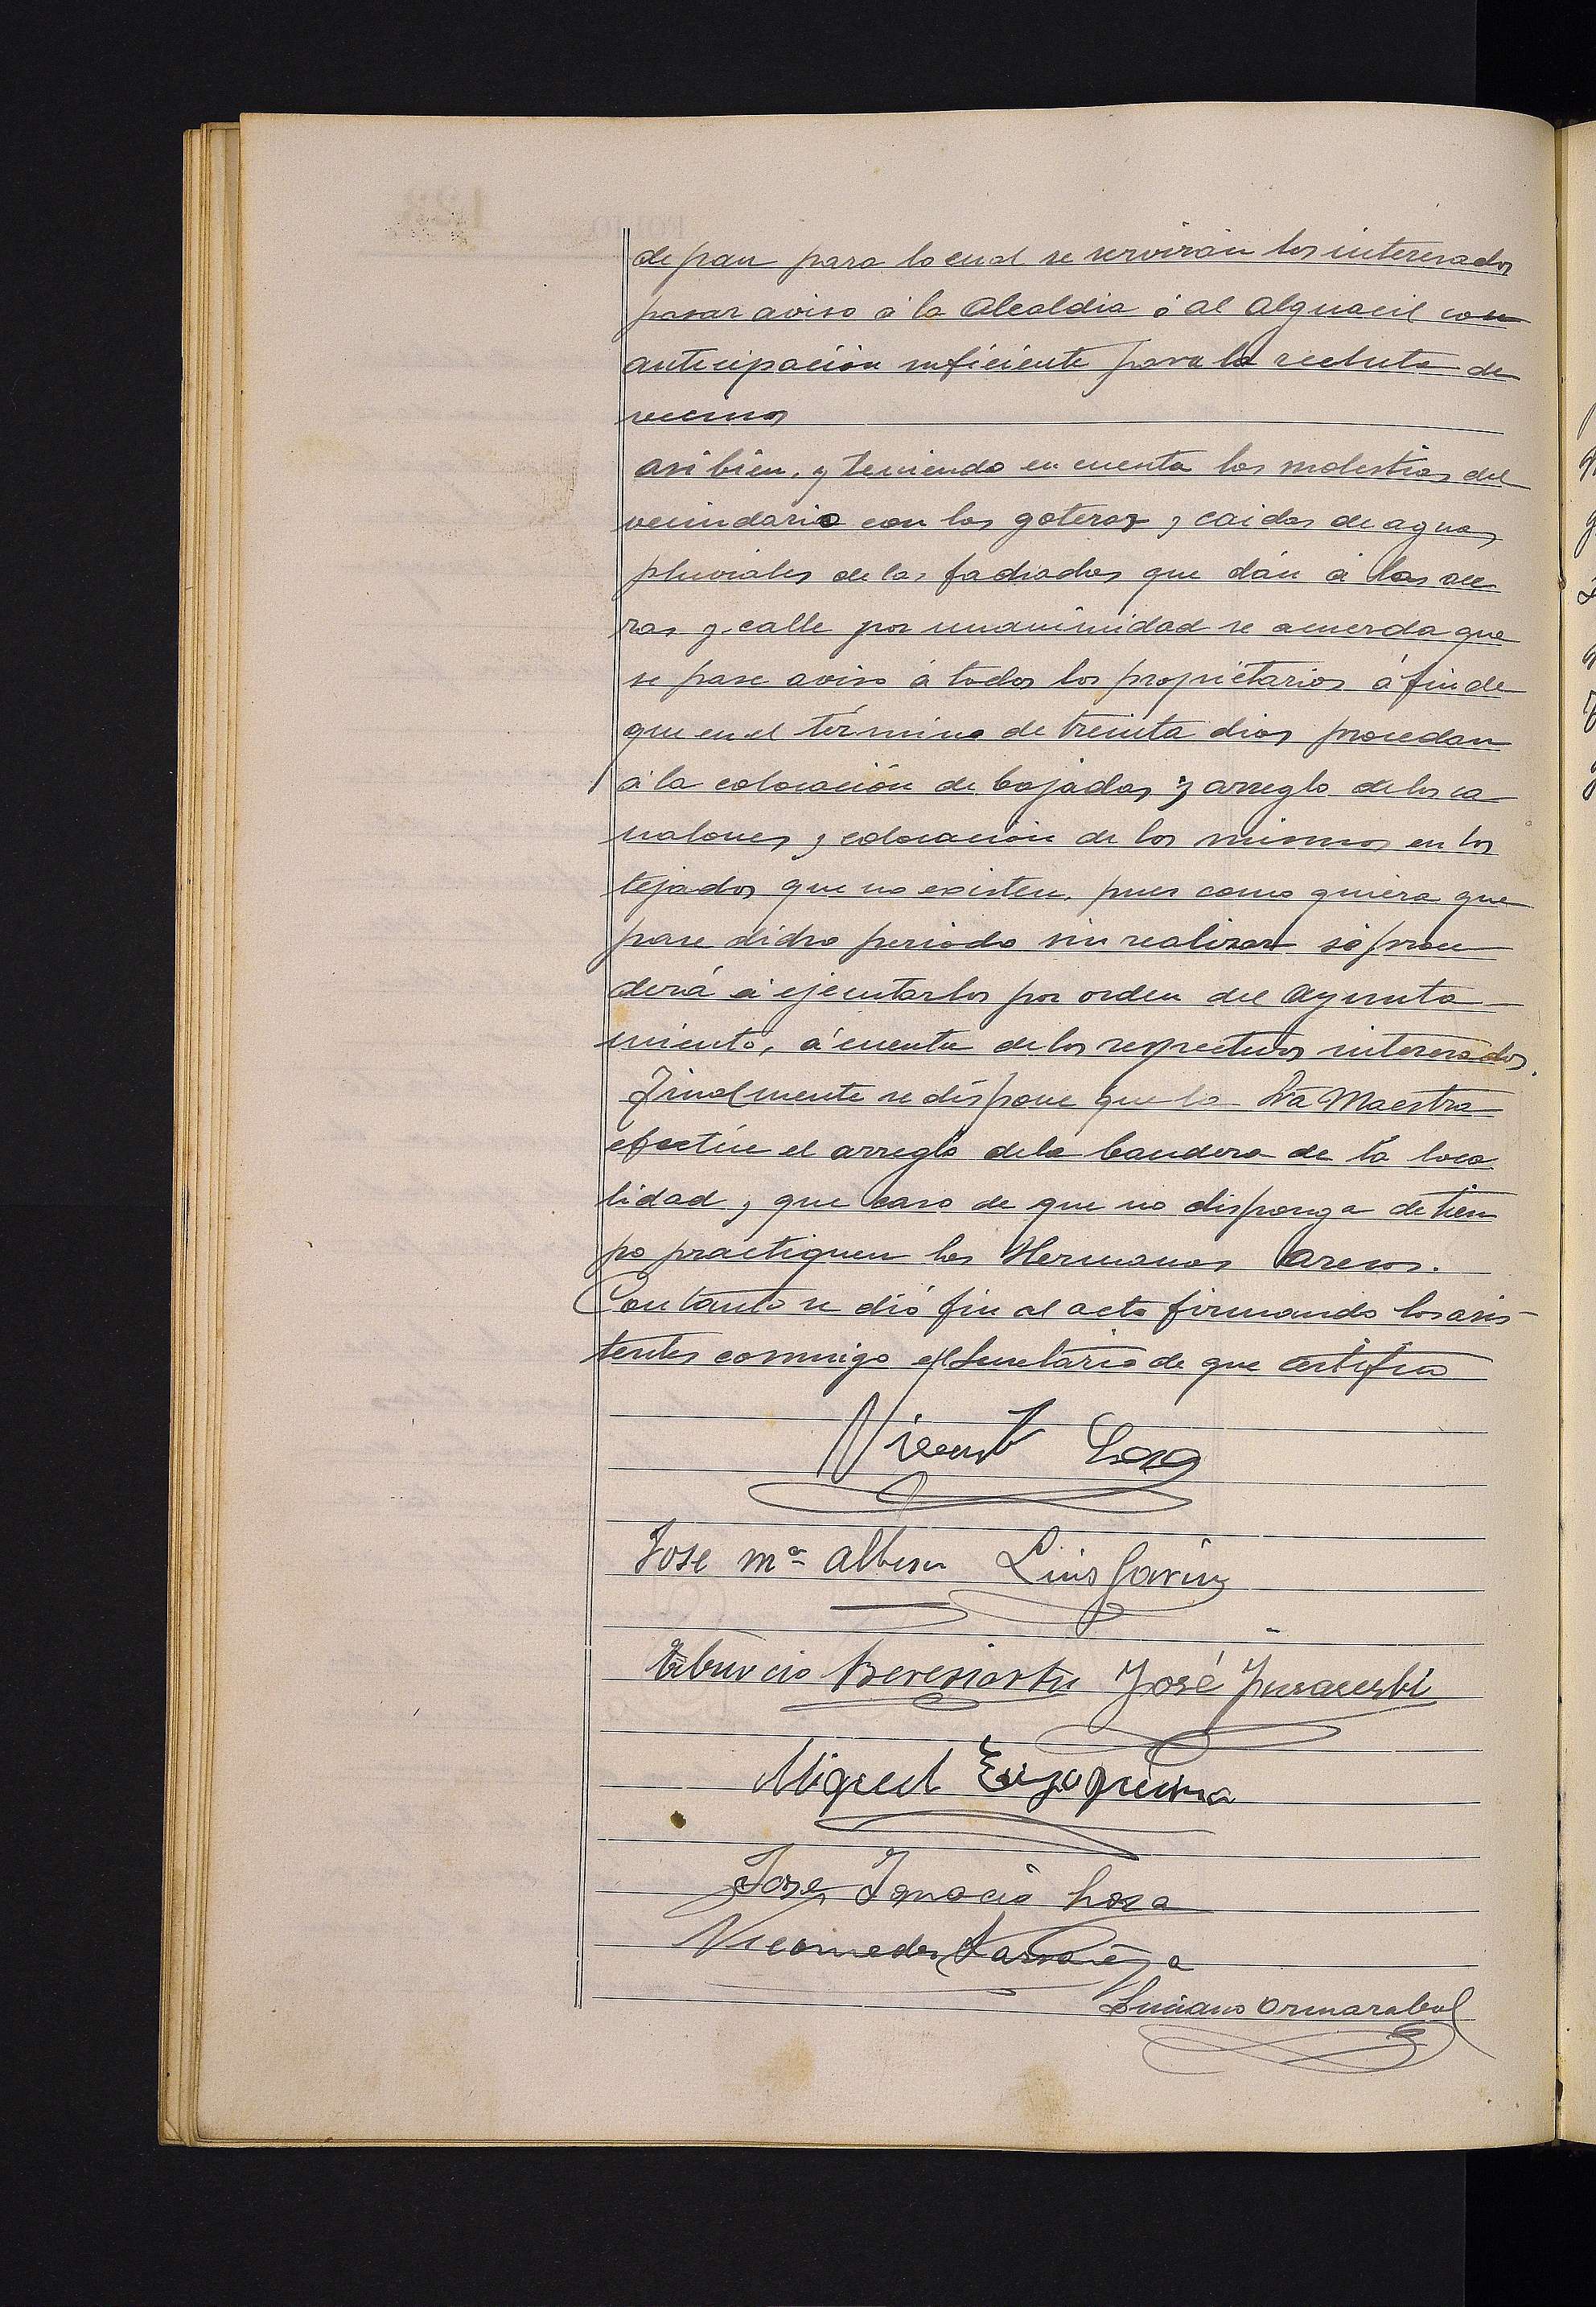 de pan para lo cual se servirán los interesados
pasar aviso á la Alcaldia ó al Alguacil con
anticipación suficiente para la recluta de
vecinos
asi bien, y teniendo en cuenta las molestias del
vecindario con las goteras y caidas de aguas
pluviales de las fachadas que dán á las ace
ras y calle por unanimidad se acuerda que
se pase aviso á todos los propietarios á fin de
que en el término de treinta dias procedan
á la colocación de bajadas y arreglo de los ca
nalones y colocación de los mismos en los
tejados que no existen, pues como quiera que
pase dicho periodo sin realizar se proce
derá á ejecutarlos por orden del Ayunta
miento, á cuenta de los respectivos interesados.
Finalmente se dispone que la Sra Maestra
efectúe el arreglo de la bandera de la loca
lidad y que caso de que no disponga de tiem
po practiquen las Hermanas Aresos.
Con tanto se dió fin al acto firmando los asis-
tentes conmigo el Secretario de que certifico
Vicente Lasa
Jose Mª Albisu Luis Garin
Tiburcio Beresiartu José
Miguel Eizaguirre
Jose Ignacio Lasa
Nicomedes Larrañaga
Luciano Ormazabal